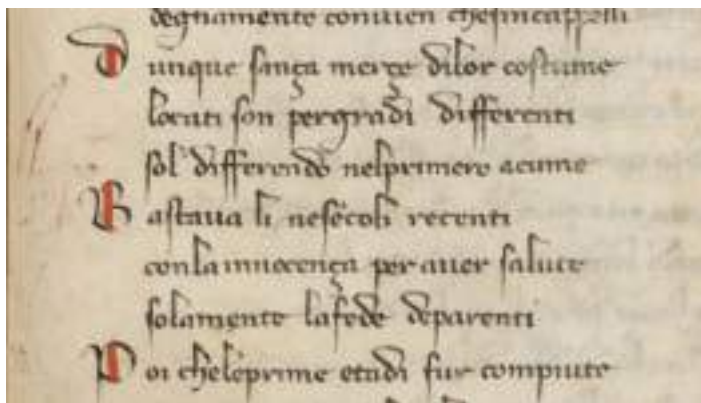 degnamente convien che sincappelli
Dunque sança merçe dilor costume
locati son pergradi differenti
sol differendo nelprimero acume
Bastaua li nesecoli recenti
conla innocença per auer salute
solamente lafede deparenti
Poi cheleprime etadi fur compiute